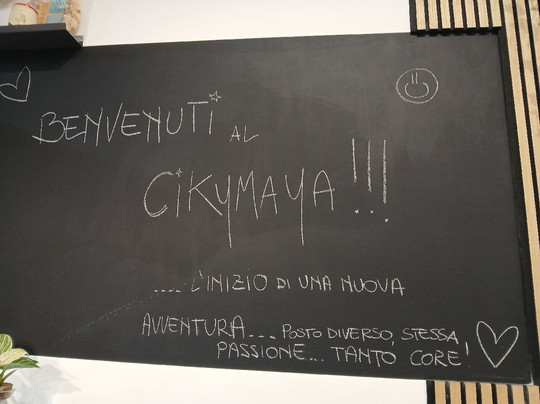 BENVENUTI AL
CIKYMAYA!!!
.... L'INIZIO DI UNA NUOVA
AVVENTURA.... POSTO DIVERSO, STESSA
PASSIONE... TANTO CORE!